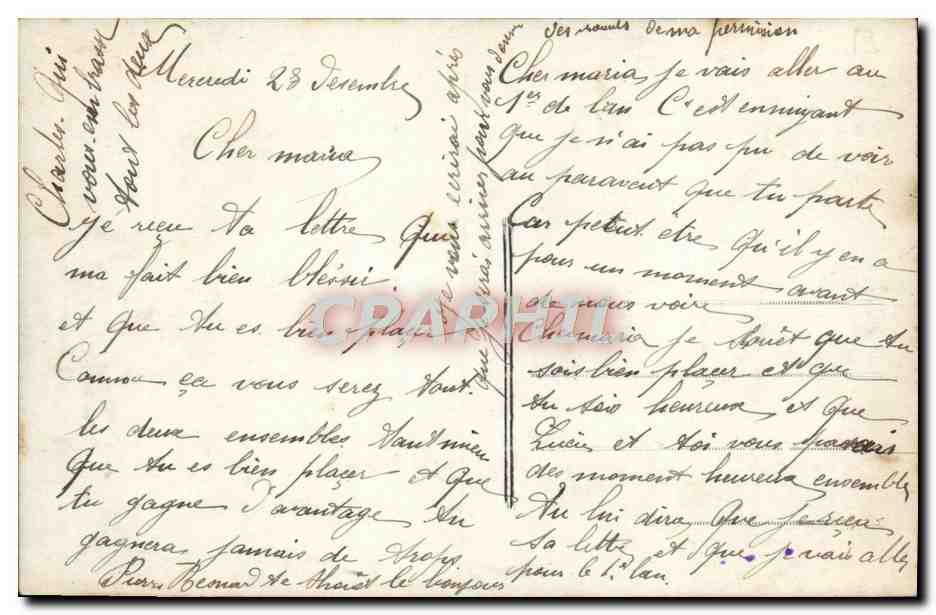 Mercredi 28 Désembre
Cher maria
j'é reçu ta lettre Qui
ma fait bien
et que tu es bien placer
Comme ça vous serez tout
les deux ensembles tant mieu
que tu es bien placer et que
tu gagne d'avantage tu
gagnera jamais de trops
Pierre te le bonjour
Cher maria, je vais aller au
1er de lan C'est ennuyant
que je n'ai pas pu de voir
au paravant que tu parte
Car petut être qu'il y en a
pour un moment avant
de nous voire
Cher maria je souêt que tu
sois bien placer et que
tu sois heureux et que
Lucie et toi vous
des moment heureux ensembles
Tu lui dira que je reçu
sa lettre et que je vais aller
pour le 1er lan.
je vous ecrirai après
que je serai arriver pour vous donner
des de ma permision
Charles Qui
vous embrasse
tout les deux
CPARHIT